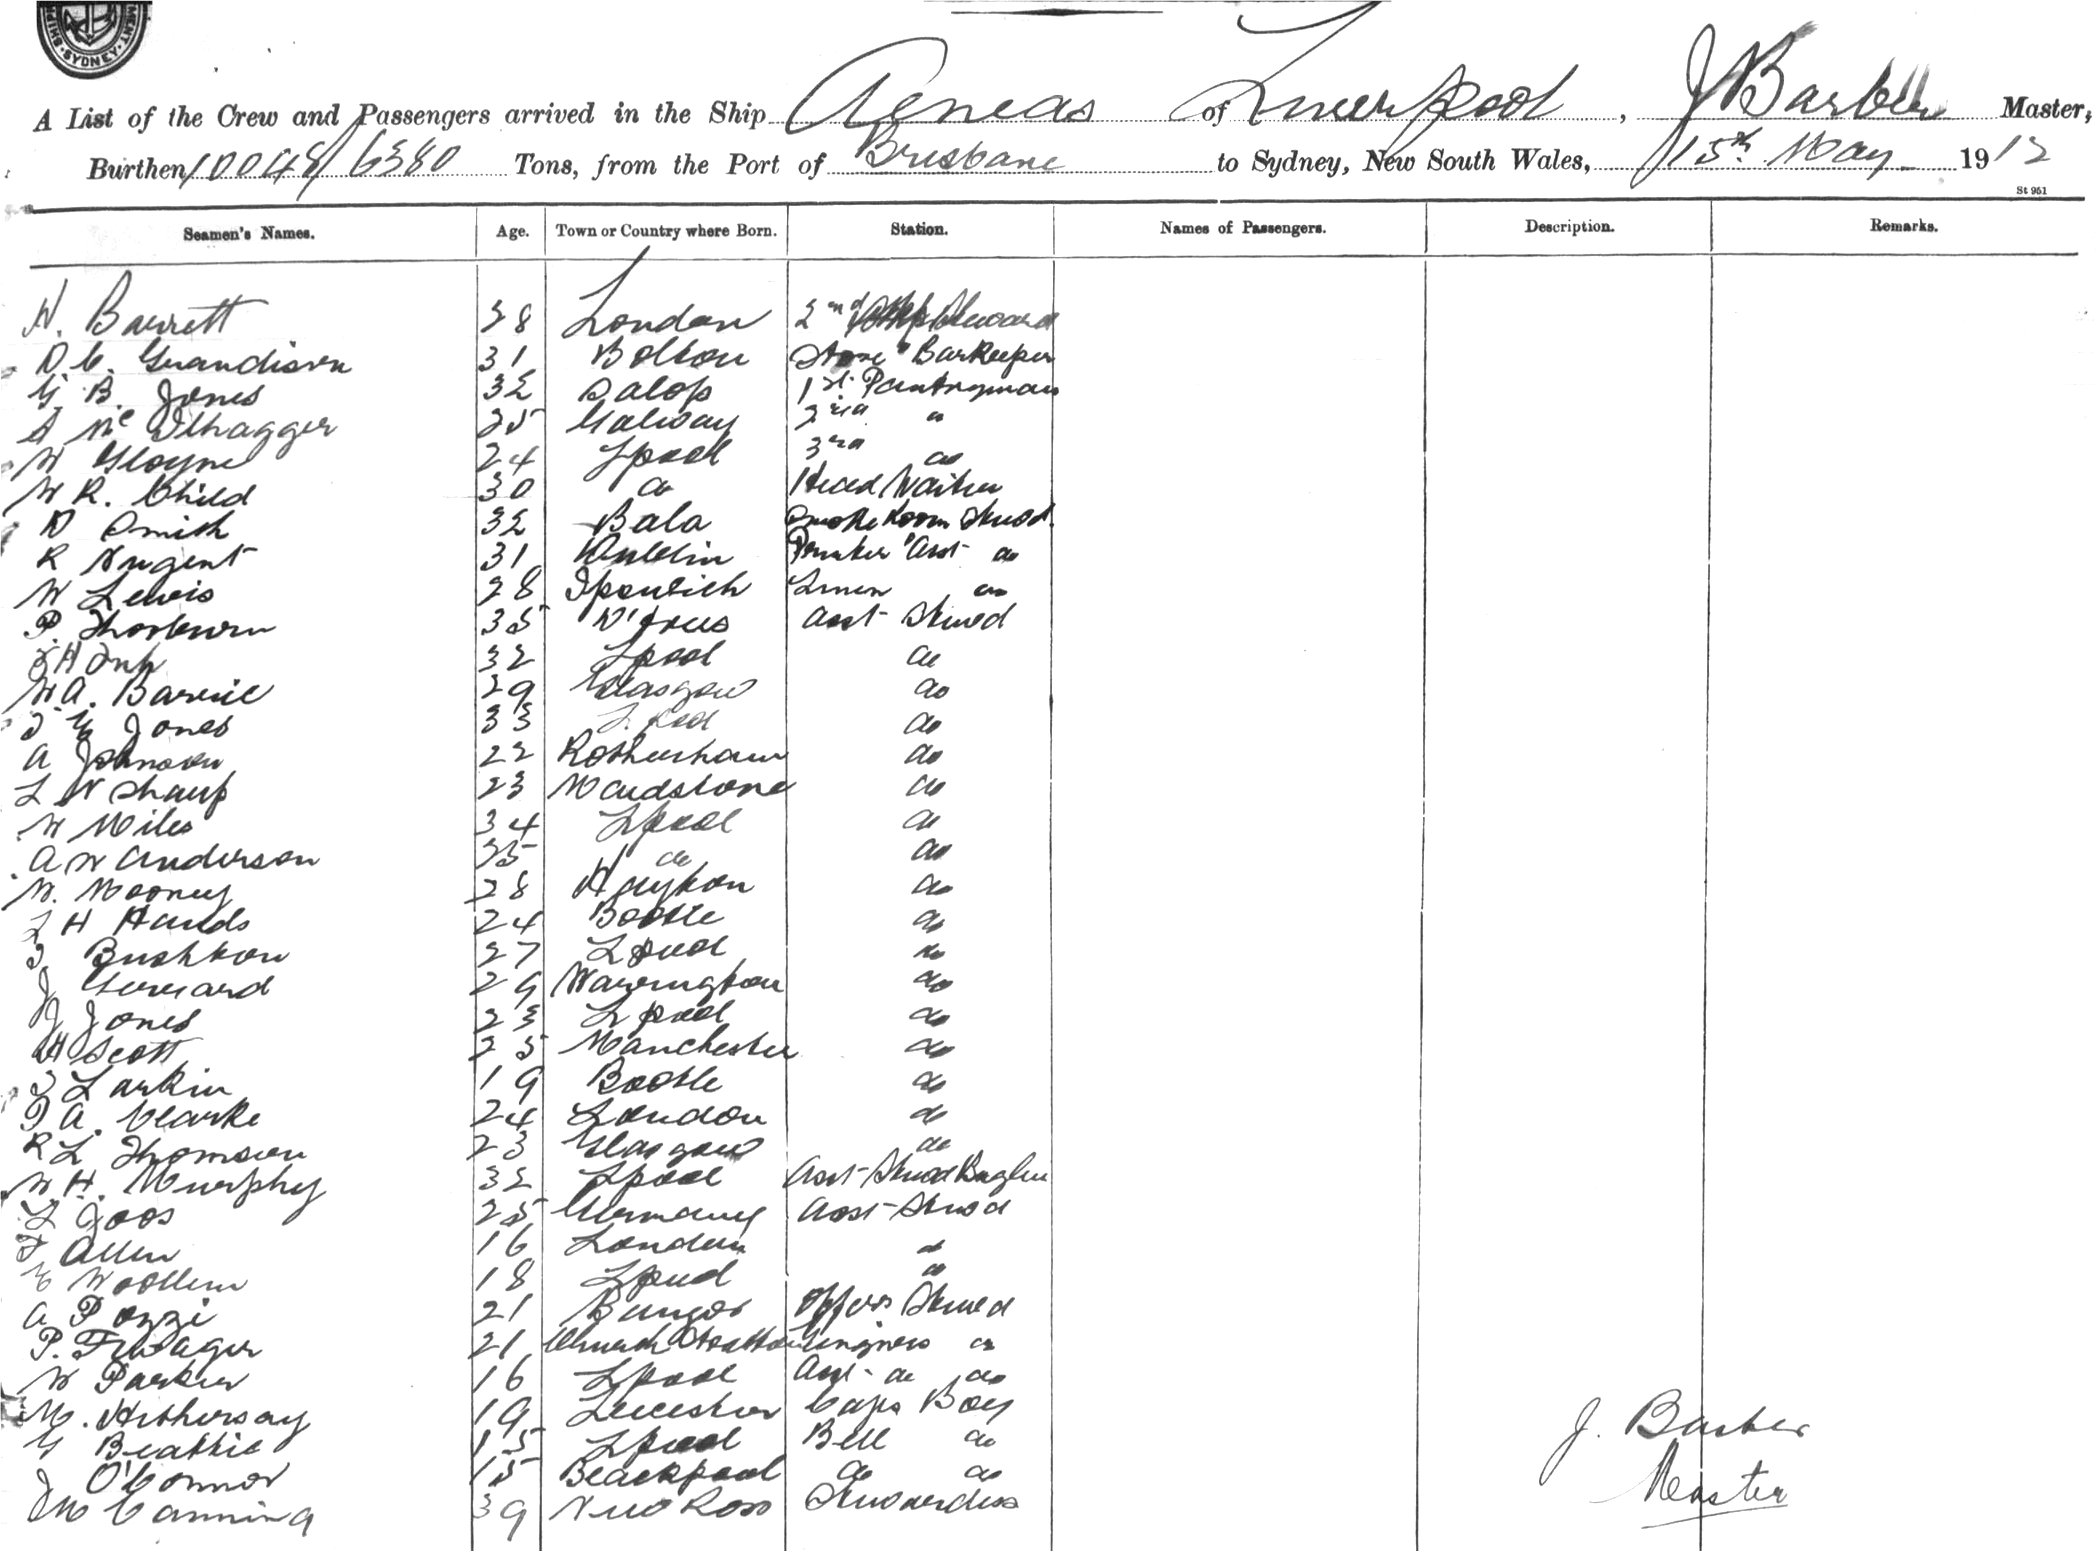 SHIPP MENT. SYDNEY.
A List of the Crew and Passengers arrived in the Ship Aeneas of Liverpool, J Barber Master,
Burthen 10048/6380 Tons, from the Port of Brisbane to Sydney, New South Wales, 15th May 1912
St 951
Seamen's Names. Age. Town or Country where Born. Station. Names of Passengers. Description. Remarks.
W. Barrett 38 London 2nd Steward
D. C. Grandison 31 Bolton Store " Barkeeper
G. B. Jones 32 Salop 1st Pantryman
A Mc 25 Galway 2nd do
W Gloyne 24 Lpool 3rd do
W R. Child 30 do Head Waiter
D Smith 32 Bala Smoke Room Stwd.
R Nugent 31 Dublin Asst do
W Lewis 28 Ipswich Linen do
P. Thorburn 35 Asst Stwd
32 Lpool do
W A. Barrie 29 Glasgow do
Jones 33 L.pool do
A Johnson 22 Rotherham do
L W Sharp 23 Maidstone do
W Miles 34 Lpool do
A W Anderson 35 do do
W. Mooney 28 Huyton do
L H Hands 24 Bootle do
Bushton 27 Lpool do
J Gerrard 29 Warrington do
J Jones 23 Lpool do
H Scott 25 Manchester do
Larkin 19 Bootle do
T A. Clarke 24 London do
R L Thomson 23 Glasgow do
W H. Murphy 32 Lpool Asst Stwd Bugler
L Joos 25 Germany Asst Stwd
Allen 16 London do
Woollem 18 Lpool do
A Pozzi 21 Bangor Officers Stwd
P. 21 Church Stretton Engineers do
W Parker 16 Lpool Asst do do
M. Hithersay 19 Leicester Capts Boy
G Beattie 15 Lpool Bell do
J O'Connor 15 Blackpool do do
M Canning 39 New Ross Stewardess
J. Barber
Master